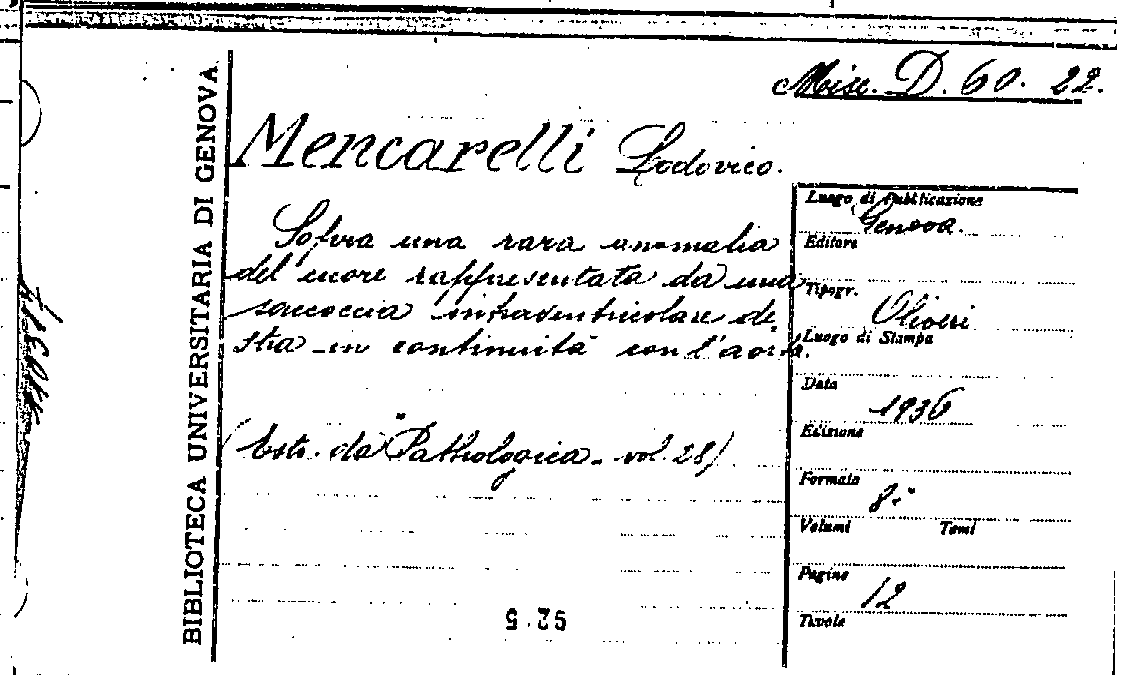 Misc. D. 60. 22.
BIBLIOTECA UNIVERSITARIA DI GENOVA
Mencarelli Lodovico.
Sopra una rara anomalia
del cuore rappresentata da una
saccoccia intraventricolare de-
stra in continuità con l'aorta.
(Estr. da "Pathologica - vol. 28)
Luogo di Pubblicazione
Genova.
Editore
Tipogr.
Oliveri
Luogo di Stampa
Data
1936
Edizione
Formato
8.°
Volumi Tomi
Pagine
12
Tavole